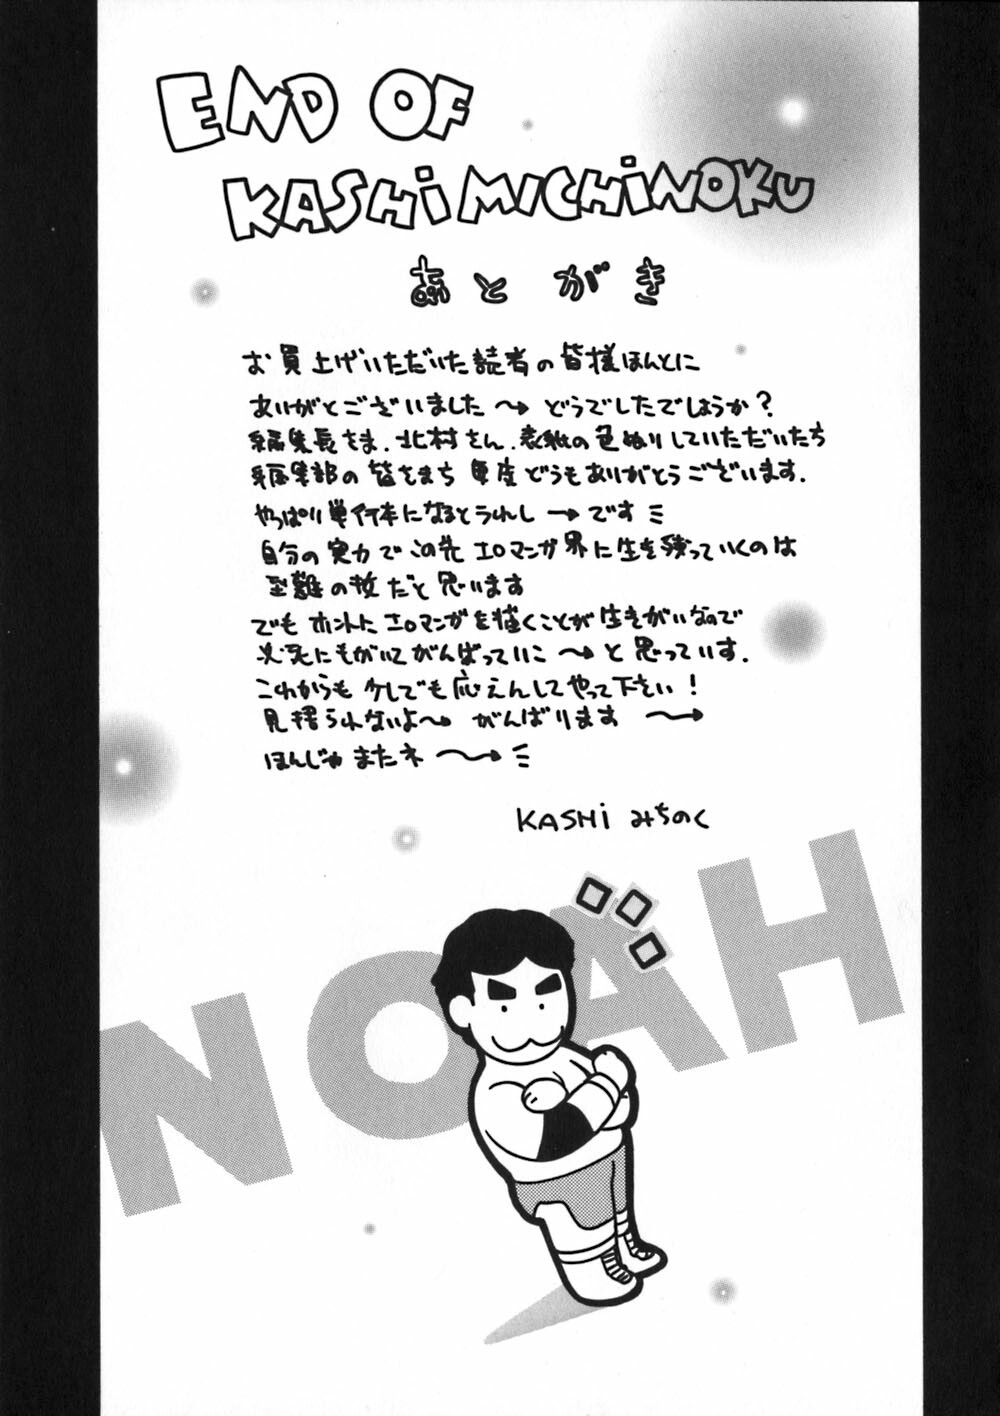 END OF
KASHIMICHINOKU
あとがき
お買上げいただいた読者の皆様ほんとに
ありがとございました〜→ どうでしたでしょうか?
編集長さま.北村さん.表紙の色ぬりしていただいたち
編集部の皆さまち 毎度どうもありがとうございます.
やっぱり単行本になるとうれし〜→です
自分の実力でこの先 エロマンガ界に生き残っていくのは
至難の技だと思います
でも ホントに エロマンガを描くことが生きがいなので
必死にもがいてがんばっていこ〜→と思っていす.
これからも 少しでも応えんしてやって下さい!
見捨られないよ〜→ がんばります 〜→
ほんじゃ またネ 〜→
KASHI みちのく
NOAH